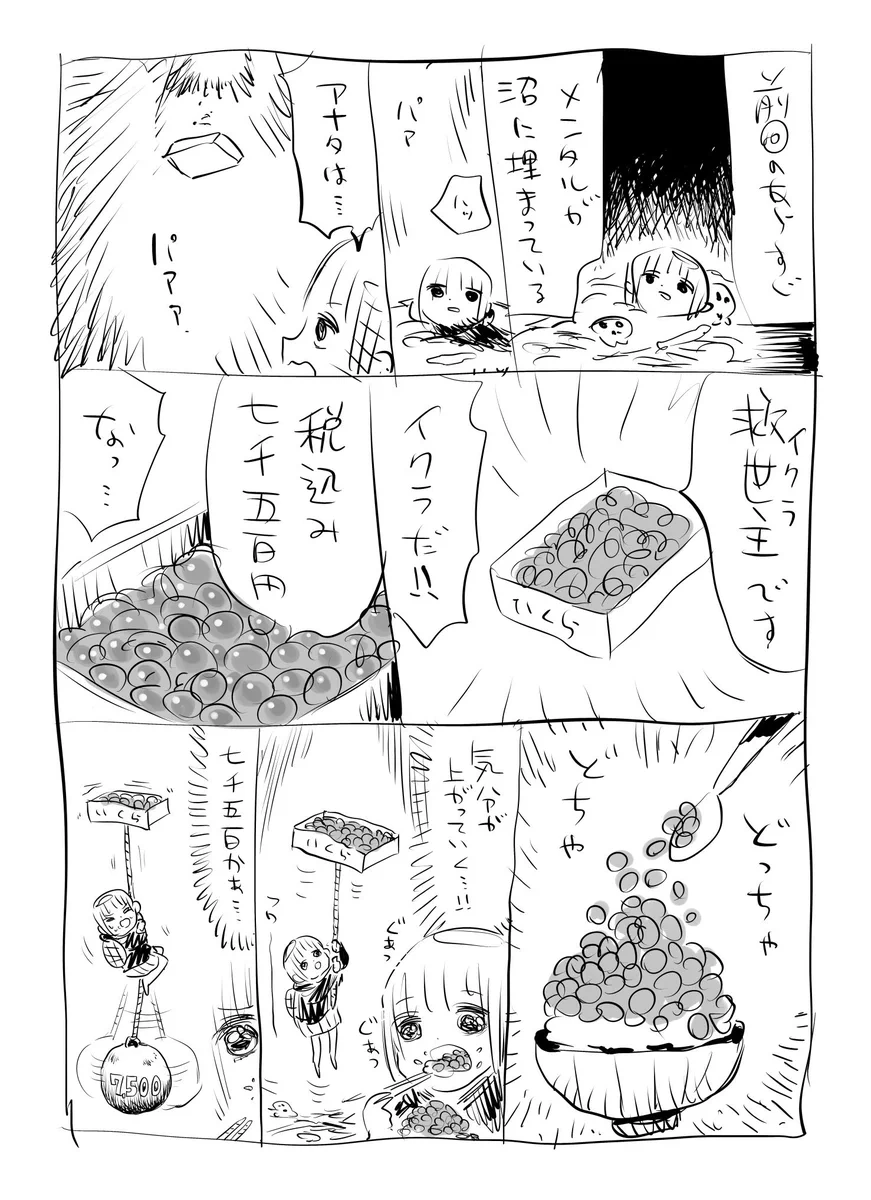 前回のあらすじ
メンタルが
沼に埋まっている
パァ
ハッ
アナタは…
パァァ
救世主です
イクラ
いくら
イクラだ!!
税込み
七千五百円
なっ…
どっちゃ
どちゃ
気分が
上がっていく…!!
いくら
ぐあっ
ぐあっ
七千五百かぁ…
いくら
7,500